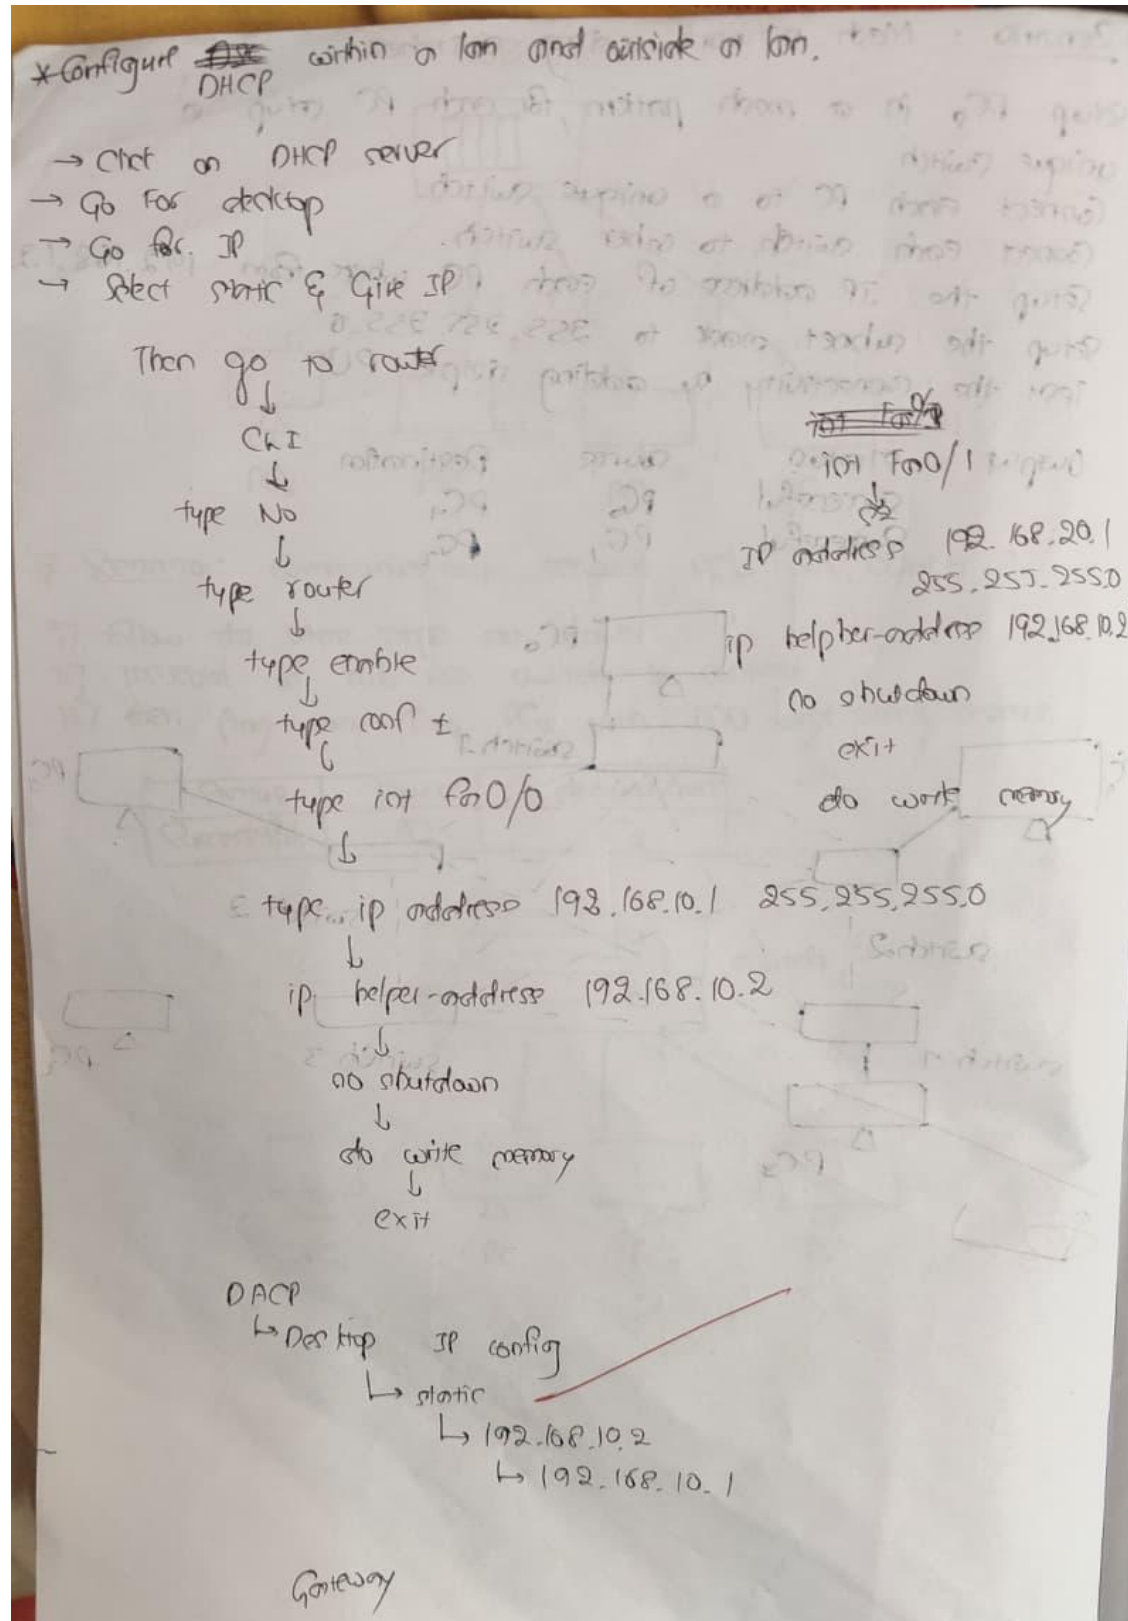 * Configure DHCP within a lan and outside a lan.
→ Click on DHCP server
→ Go for desktop
→ Go for. IP
→ Select static & Give IP
Then go to router
↓
CLI
↓
type No
↓
type router
↓
type enable
↓
type conf t
type int fa0/0
↓
type.. ip address 192.168.10.1 255.255.255.0
↓
ip helper-address 192.168.10.2
↓
no shutdown
↓
do write memory
↓
exit
int fa0/1
↓
IP address 192.168.20.1
255.255.255.0
ip helpher-address 192.168.10.2
no shutdown
exit
do work memory
DACP
↳ Desktop IP config
↳ static
↳ 192.168.10.2
↳ 192.168.10.1
Gateway